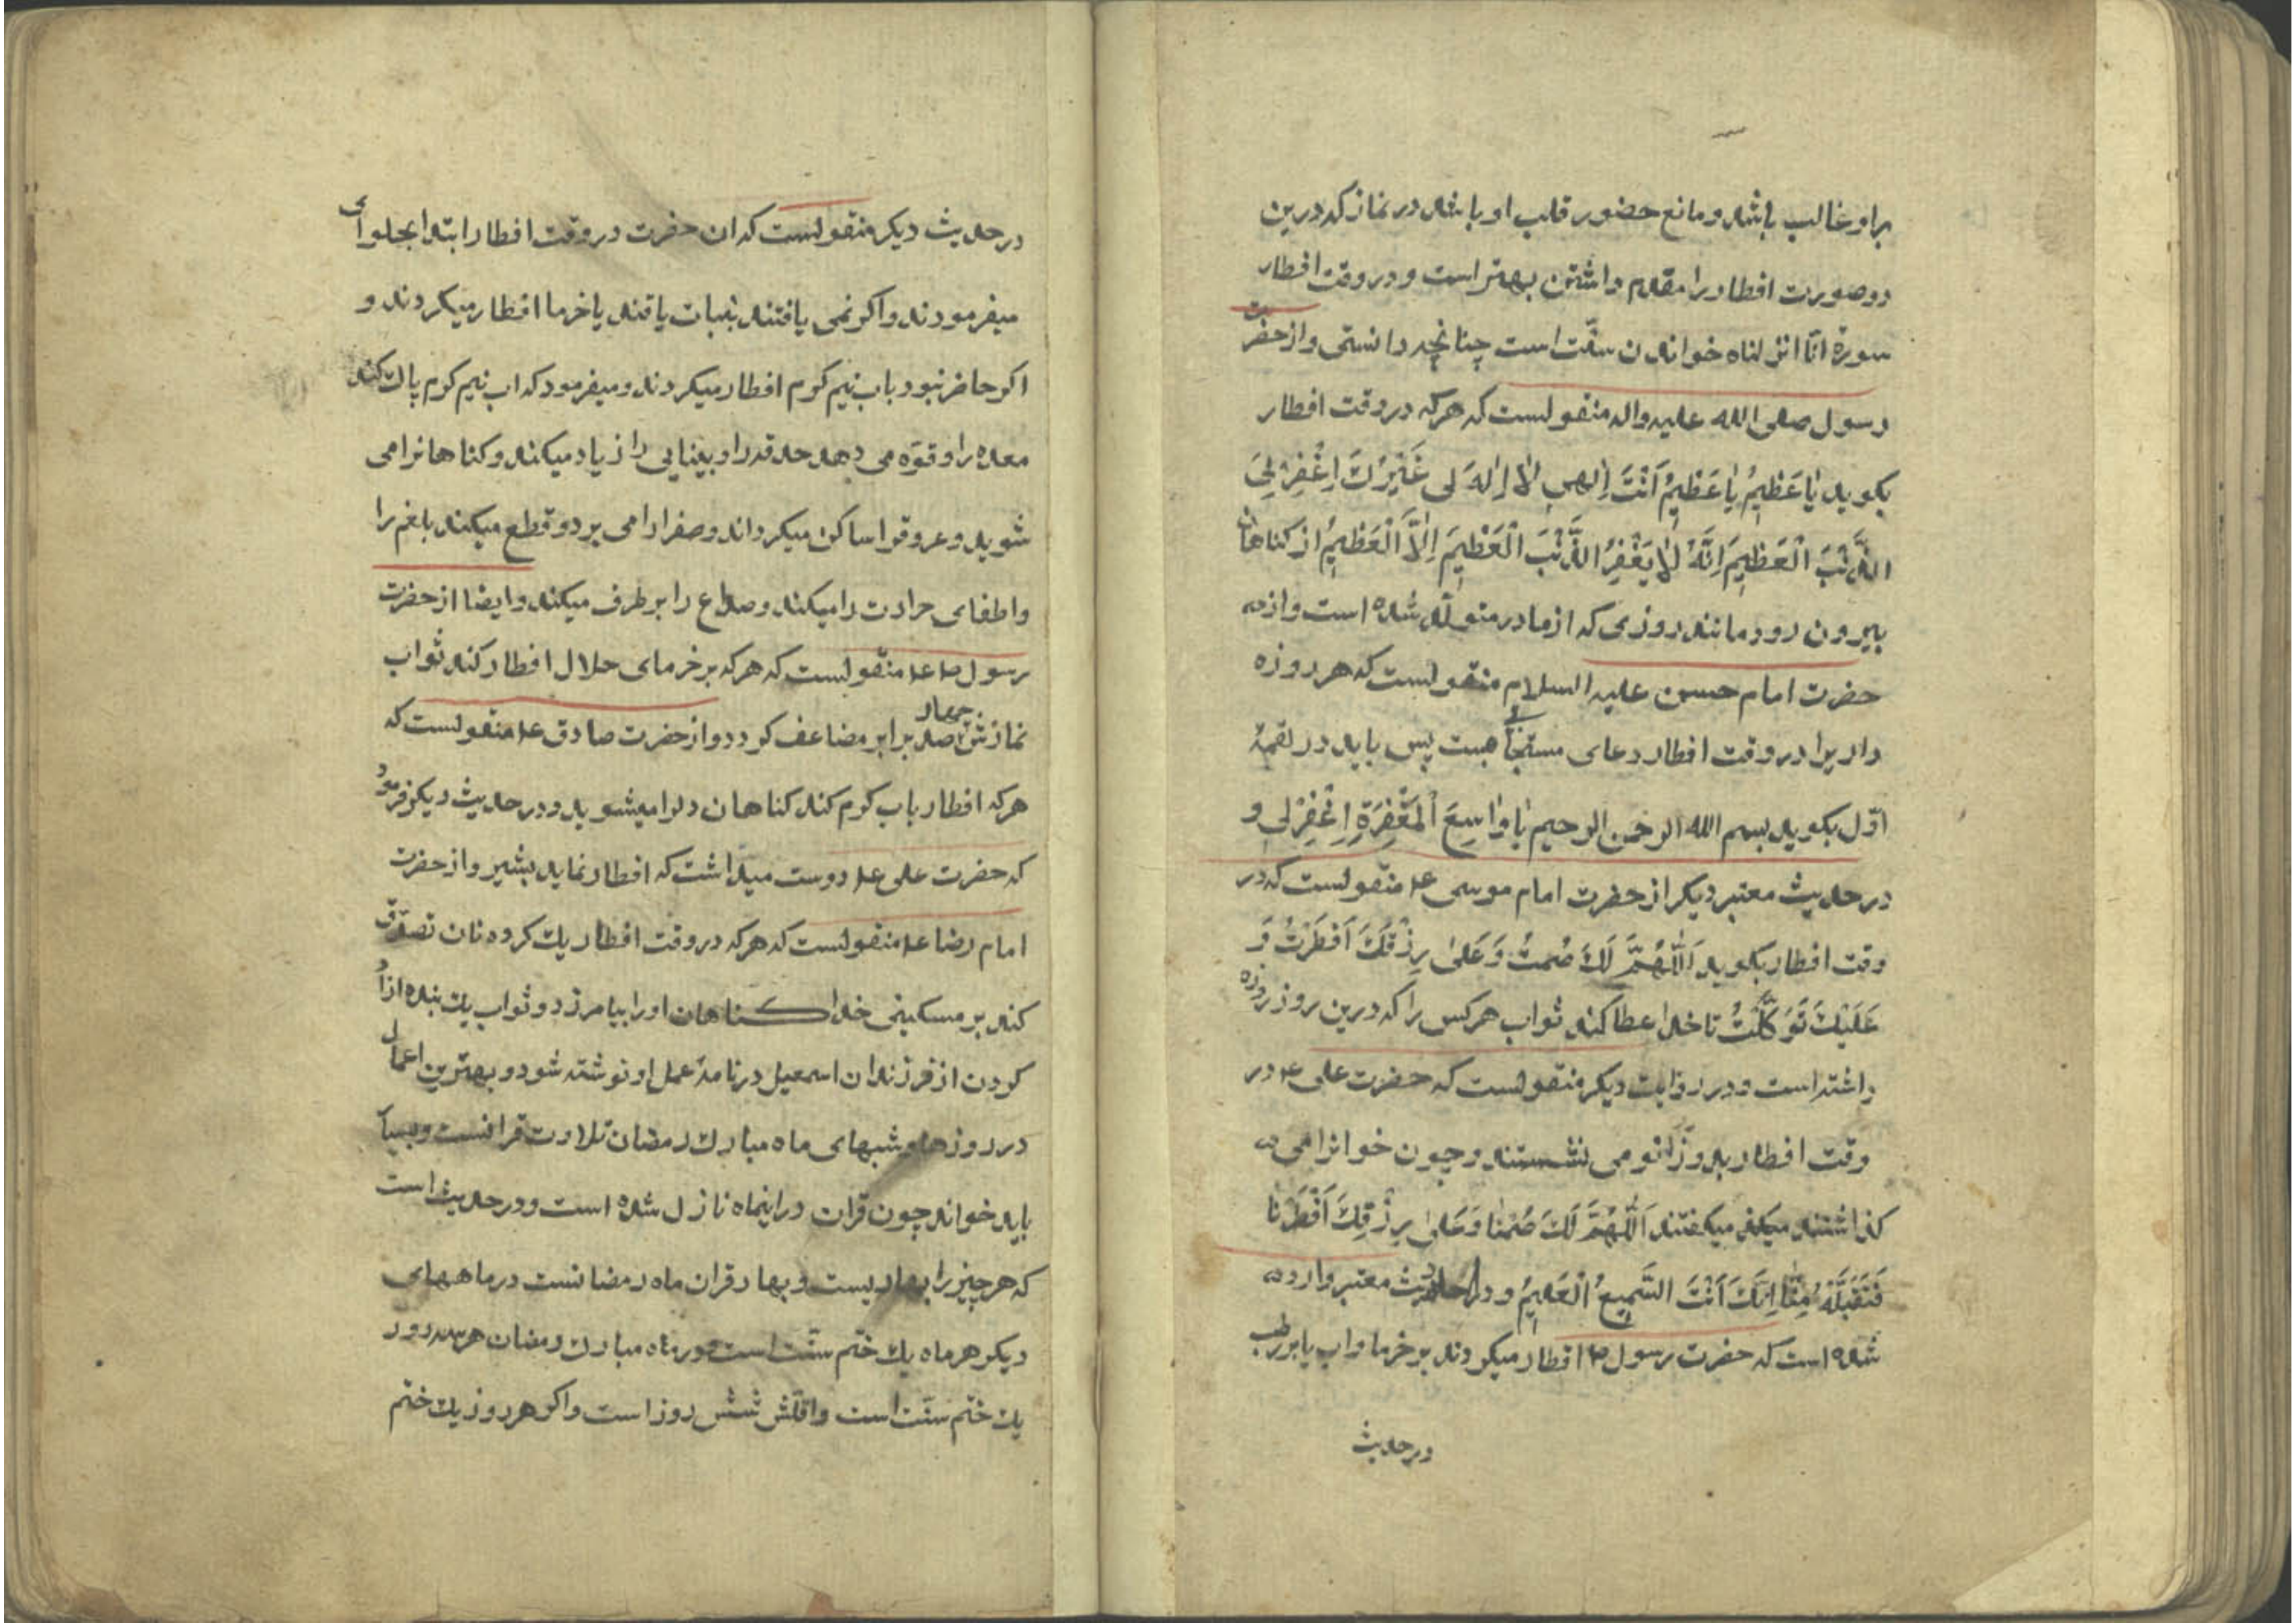 براو غالب باشد و مانع حضور قلب او باشد در نماز که درین
دو صورت افطار را مقدم داشتن بهتر است و در وقت افطار
سورة انّا انزلناه خواندن سنّت است چنانچه دانستی و از حضرت
رسول صلی الله علیه واله منقولست که هرکه در وقت افطار
بکوید یٰا عَظٖیمُ یٰا عَظٖیمُ اَنْتَ اِلٰهٖی لاٰ اِلٰهَ لی غَیْرُكَ اِغْفِرْ لِیَ
الذَّنْبَ الْعَظٖیمَ اِنَّهُ لاٰ یَغْفِرُ الذَّنْبَ الْعَظٖیمَ اِلاَّ الْعَظٖیمُ از کناهان
بیرون رود مانند روزی که از مادر متولّد شده است و از
حضرت امام حسین علیه السلام منقولست که هر روزه
داریرا در وقت افطار دعای مستجابی هست پس باید در لقمهٔ
اوّل بکوید بسم الله الرحمن الرحیم یٰا وٰاسِعَ الْمَغْفِرَةِ اِغْفِرْلی و
در حدیث معتبر دیکر از حضرت امام موسی ع منقولست که در
وقت افطار بکوید اَللّٰهُمَّ لَكَ صُمتُ وَ عَلیٰ رِزْقِكَ اَفْطَرْتُ وَ
عَلَیْكَ تَوَکَّلْتُ تا خدا عطا کند ثواب هر کس را که درین روز روزه
داشته است و در روایت دیکر منقولست که حضرت علی ع در
وقت افطار بدو زانو می نشستند و چون خوانرا می
کذاشتند میکفتند اَللّٰهُمَّ لَكَ صُمْنٰا وَ عَلیٰ رِزْقِكَ اَفْطَرْنٰا
فَتَقَبَّلْهُ مِنّٰا اِنَّكَ اَنْتَ السَّمیعُ الْعَلیمُ و در احادیث معتبر وارد
شده است که حضرت رسول ص افطار میکردند بر خرما و اب یا بر رطب
در حدیث
در حدیث دیکر منقولست که ان حضرت در وقت افطار ابتدا بحلوای
میفرمودند و اکر نمی یافتند بنبات یا قند یا خرما افطار میکردند و
اکر حاضر نبود باب نیم کرم افطار میکردند و میفرمود که اب نیم کرم پاك کند
معده را و قوّه می دهد حدقه را و بینایی را زیاد میکند و کناهانرا می
شوید و عروقرا ساکن میکرداند و صفرا را می برد و قطع میکند بلغم را
و اطفای حرارت را میکند و صداع را بر طرف میکند و ایضا از حضرت
رسول ص ع منقولست که هرکه بر خرمای حلال افطار کند ثواب
نمازش چهار صد برابر مضاعف کردد و از حضرت صادق ع منقولست که
هرکه افطار باب کرم کند کناهان دلرا میشوید و در حدیث دیکر فرمود
که حضرت علی ع دوست میداشت که افطار نماید بشیر و از حضرت
امام رضا ع منقولست که هرکه در وقت افطار یك کرده نان تصدّق
کند بر مسکینی خدا کناهان او را بیامرزد و ثواب یك بنده ازاد
کردن از فرزندان اسمعیل در نامهٔ عمل او نوشته شود و بهترین اعمال
در روزها و شبهای ماه مبارك رمضان تلاوت قرانست و بسیار
باید خواند چون قران در اینماه نازل شده است و در حدیث است
که هر چیز را بهاریست و بهار قران ماه رمضانست در ماههای
دیکر هر ماه یك ختم سنّت است و در ماه مبارك رمضان هر سه روز
یك ختم سنّت است و اقلّش شش روز است و اکر هر روز یك ختم